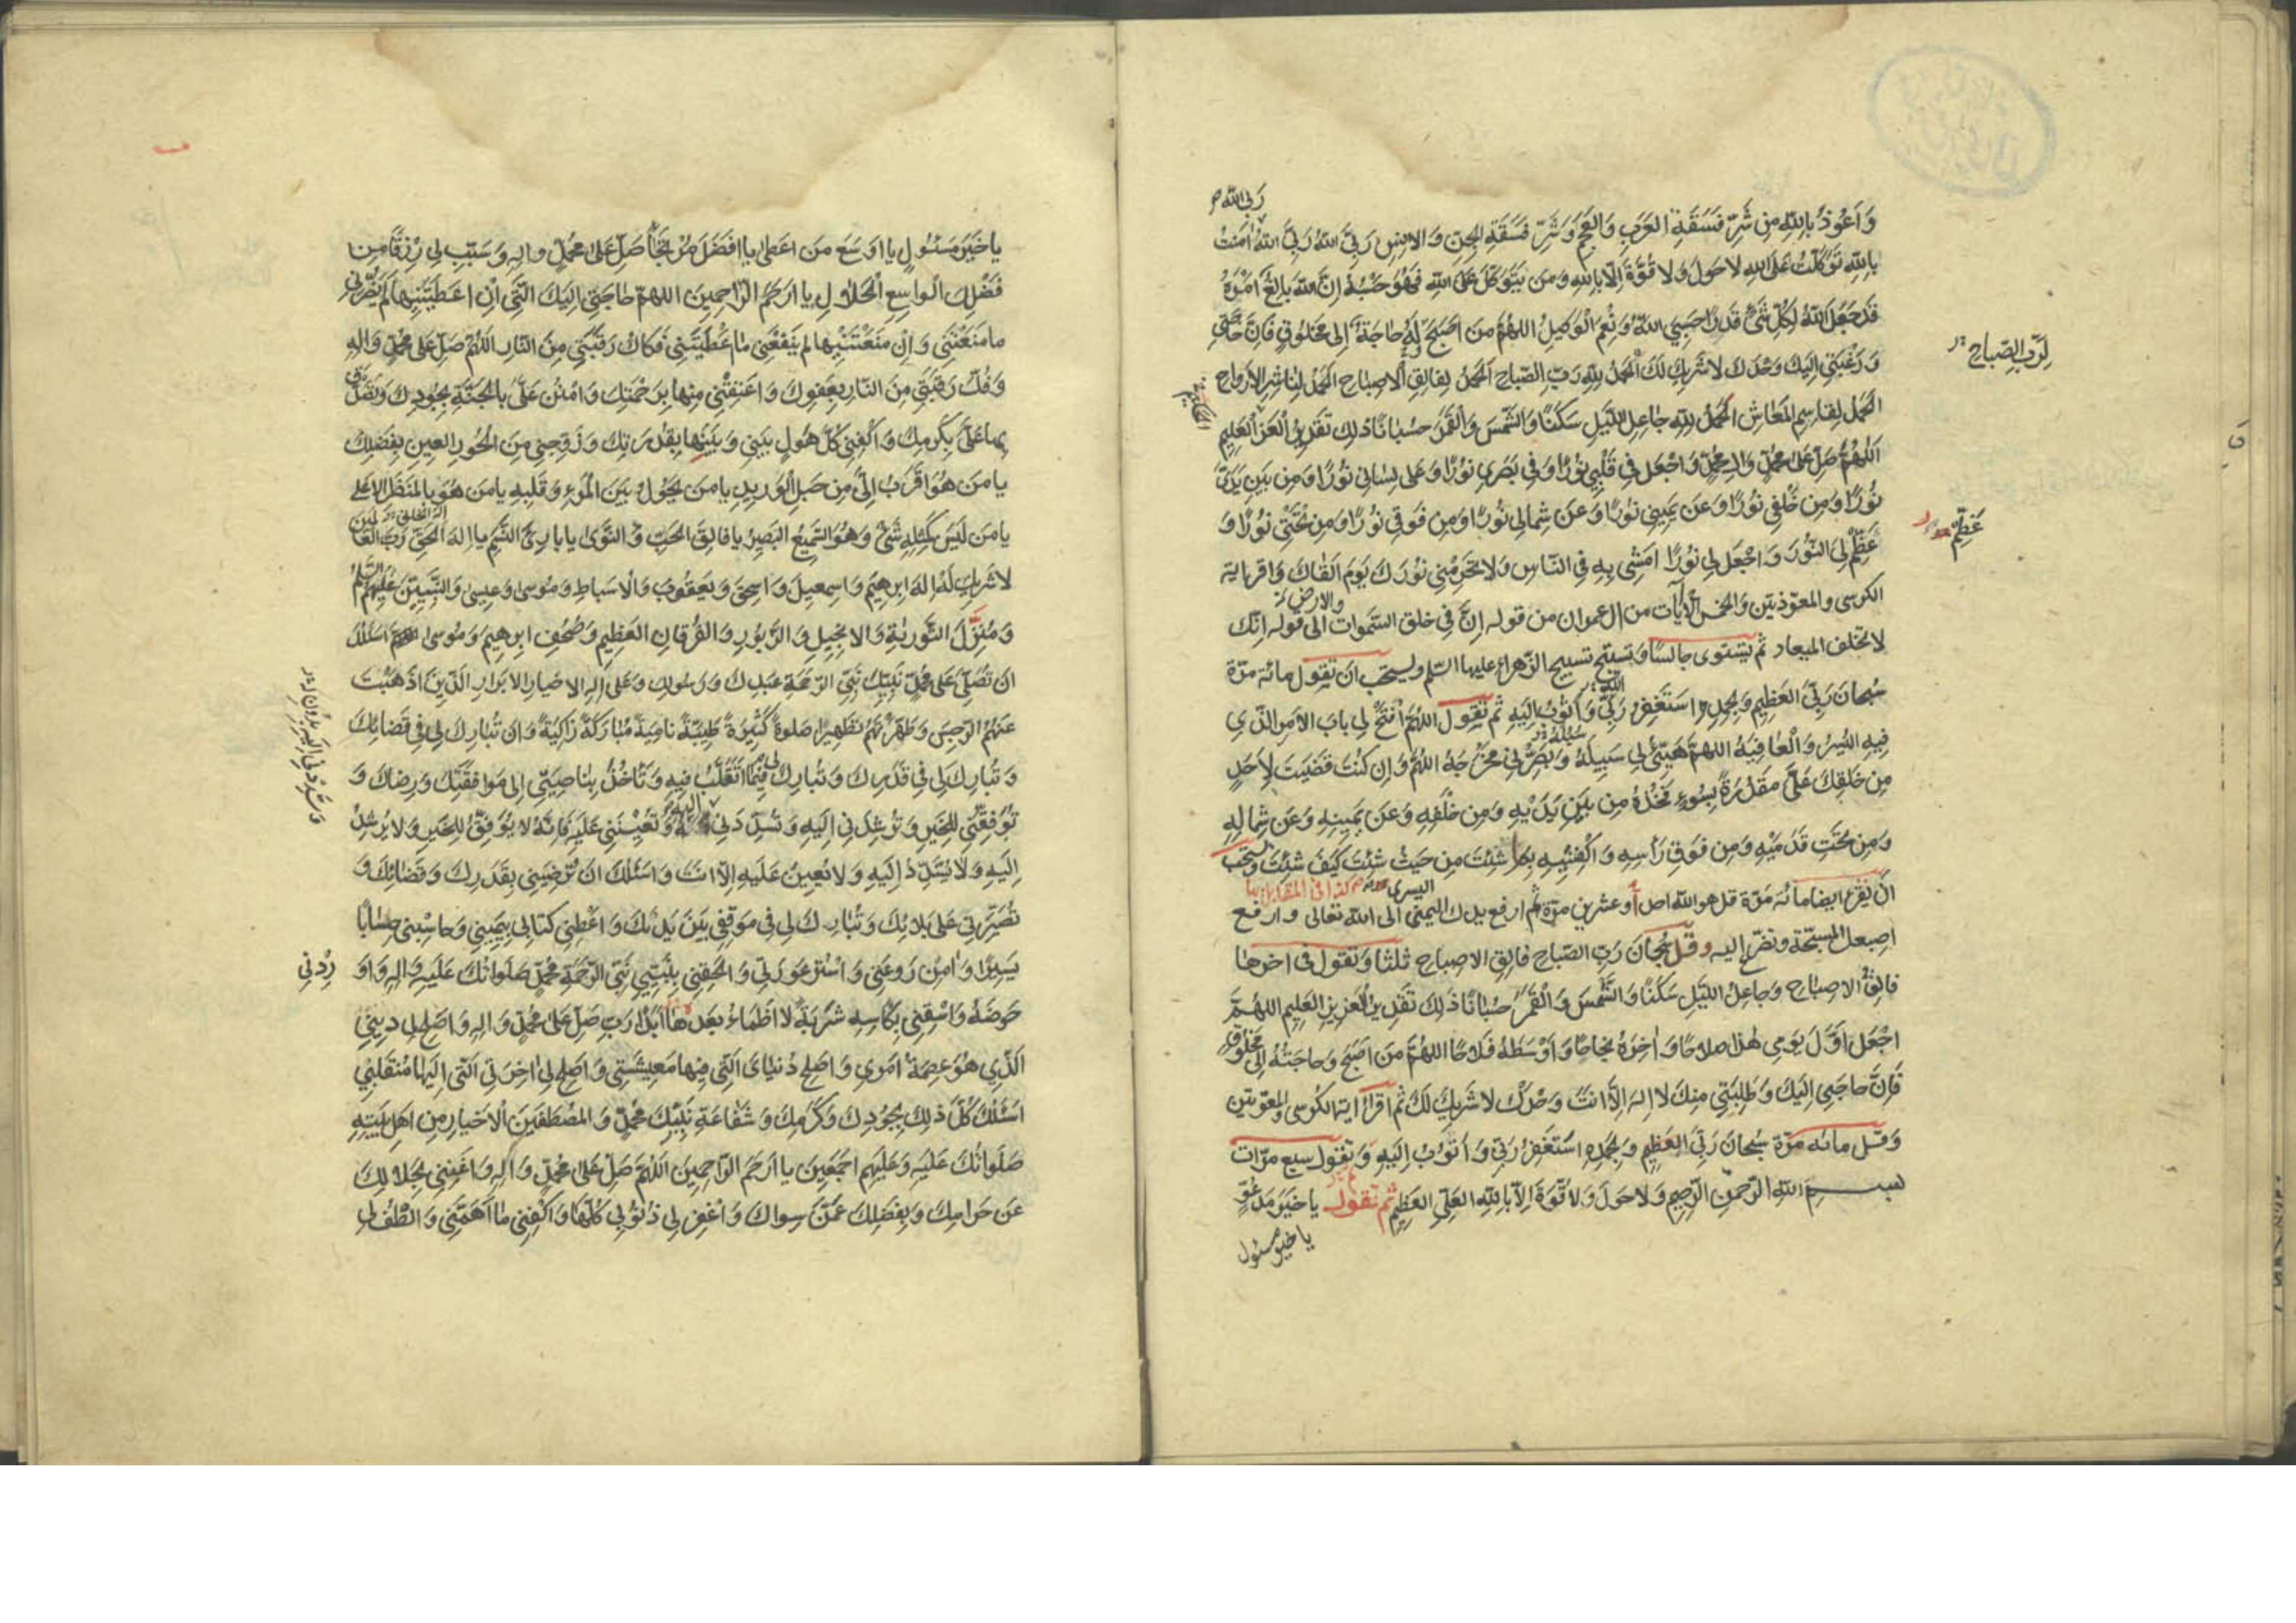 ربی الله
وَاَعُوذُ بِاللّٰهِ مِن شَرِّ فَسَقَةِ العَرَبِ وَالعَجَمِ وَشَرِّ فَسَقَةِ الجِنِّ وَالاِنسِ رَبِّیَ اللهُ رَبِّیَ اللهُ امَنْتُ
بِاللّٰهِ تَوَكَّلْتُ عَلَى اللهِ لاحَولَ وَلا قُوَّةَ اِلّا بِاللهِ وَمَن يَتَوَكَّل عَلَى اللّٰهِ فَهُوَ حَسْبُهُ اِنَّ اللّٰهَ بالِغُ اَمْرِهِ
قَد جَعَلَ اللّٰهُ لِكُلِّ شَیْءٍ قَدرًا حَسبِیَ اللّٰهُ وَنِعمَ الْوَكيلُ اللهُمَّ مَن اَصبَحَ لَهُ حاجَةٌ اِلى مَخلُوقٍ فَاِنَّ حاجَتِي
وَرَغْبَتِي اِلَيكَ وَحْدَكَ لاشَرِيكَ لَكَ اَلْحَمدُ لِلّٰهِ رَبِّ الصَّباحِ اَلحَمدُ لِفالِقِ الاِصباحِ الحَمدُ لِناشِرِ الاَرواحِ
لِرَبِّ الصَّباحِ
الحَمدُ لِقاسِمِ المَعاشِ الحَمدُ لِلّٰهِ جاعِلِ اللَّيلِ سَكَنًا وَالشَّمسَ وَالْقَمَرَ حُسْبانًا ذٰلِكَ تَقدِيرُ العَزِيزِ العَلِيمِ
اَللّٰهُمَّ صَلِّ عَلى مُحَمَّدٍ وَالِ مُحَمَّدٍ وَاجْعَل فِي قَلْبِي نُورًا وَفِي بَصَرِي نُورًا وَعَلى لِسانِي نُورًا وَمِن بَينِ يَدَیَّ
نُورًا وَمِن خَلْفِي نُورًا وَعَن يَمِينِي نُورًا وَعَن شِمالِي نُورًا وَمِن فَوقِي نُورًا وَمِن تَحْتِي نُورًا وَ
عَظِّمْ
عَظِّمْ لِیَ النُّورَ وَاجْعَل لِي نُورًا اَمشِي بِهِ فِي النّاسِ وَلا تَحرِمْنِي نُورَكَ يَومَ اَلقاكَ واقرء اية
الكرسى والمعوّذتين والخمس الآيات من ال عمران من قوله اِنَّ فِي خلق السّموات والارض الى قوله انّك
لا تخلف الميعاد ثم تستوى جالسًا وتسبّح تسبيح الزّهراء عليها السّلم ويستحب ان تقول مائة مرّة
سُبحانَ رَبِّيَ العَظِيمِ وَبِحَمدِهِ اَستَغفِرُ اللّٰهَ رَبِّي وَاَتُوبُ اِلَيهِ ثم تقول اللّهُمَّ افْتَحْ لِي بابَ الاَمرِ الَّذِي
فِيهِ اليُسرُ وَالْعافِيَةُ اللهُمَّ هَيِّئْ لِي سَبِيلَهُ وَبَصِّرْنِي مَخرَجَهُ اللّهُمَّ وَاِن كُنتَ قَضَيتَ لِاَحَدٍ
مِن خَلقِكَ عَلَیَّ مَقدُرَةً بِسُوءٍ فَخُذْهُ مِن بَينِ يَدَيْهِ وَمِن خَلْفِهِ وَعَن يَمِينِهِ وَعَن شِمالِهِ
وَمِن تَحتِ قَدَمَيْهِ وَمِن فَوقِ رَأسِهِ وَاكْفِنِيهِ بِما شِئتَ مِن حَيثُ شِئتَ كَيفَ شِئتَ ويستحب
ان يقرء ايضا مائة مرّة قل هو الله احد او عشرين مرّة ثم ارفع يدك اليمنى الى الله تعالى وارفع
اصبعك المسبّحة وتضرّع اليه وقل سُبحانَ رَبِّ الصّباحِ فالِقِ الاِصباحِ ثلثا وتقول فى اخرها
فالِقُ الاِصباحِ وَجاعِلُ اللَّيلِ سَكَنًا وَالشَّمسَ وَالْقَمَرَ حُسْبانًا ذٰلِكَ تَقدِيرُ العَزِيزِ العَلِيمِ اللّهُمَّ
اجْعَل اَوَّلَ يَومِي هٰذا صَلاحًا وَاٰخِرَهُ نَجاحًا وَاَوسَطَهُ فَلاحًا اللهُمَّ مَن اَصبَحَ وَحاجَتُهُ اِلى مَخلُوقٍ
فَاِنَّ حاجَتِي اِلَيكَ وَطَلِبَتِي مِنكَ لا اِلهَ اِلّا اَنتَ وَحدَكَ لاشَرِيكَ لَكَ ثم اقرا اية الكرسى والمعوّذتين
وقل مائة مرّة سُبحانَ رَبِّيَ العَظِيمِ وَبِحَمدِهِ اَستَغفِرُ رَبِّي وَاَتُوبُ اِلَيهِ وتقول سبع مرّات
بسم اللّٰهِ الرَّحمٰنِ الرَّحِيمِ وَلاحَولَ وَلا قُوَّةَ اِلّا بِاللّٰهِ العَلِيِّ العَظِيمِ ثم تقول يا خَيرَ مَدعُوٍّ
يا خير مسئول
يا خَيرَ مَسئُولٍ يا اَوسَعَ مَن اَعطى يا اَفضَلَ مُرتَجًى صَلِّ عَلى مُحَمَّدٍ وَالِهِ وَسَبِّب لِي رِزقًا مِن
فَضْلِكَ الْواسِعِ الْحَلالِ يا اَرحَمَ الرّاحِمِينَ اللهُمَّ حاجَتِي اِلَيكَ الَّتِي اِن اَعطَيتَنِيها لَم يَضُرَّنِي
ما مَنَعْتَنِي وَاِن مَنَعْتَنِيها لم يَنفَعنِي ما اَعْطَيتَنِي فَكاكَ رَقَبَتِي مِنَ النّارِ اللّهُمَّ صَلِّ عَلى مُحَمَّدٍ وَالِهِ
وَفُكَّ رَقَبَتِي مِنَ النّارِ بِعَفوِكَ وَاعتِقْنِي مِنها بِرَحْمَتِكَ وَامنُن عَلَیَّ بِالجَنَّةِ بِجُودِكَ وَتَصَدَّق
بِها عَلَیَّ بِكَرَمِكَ وَاكْفِنِي كُلَّ هَولٍ بَينِي وَبَينَها بِقُدرَتِكَ وَزَوِّجنِي مِنَ الحُورِ العِينِ بِفَضلِكَ
يا مَن هُوَ اَقرَبُ اِلَیَّ مِن حَبلِ الوَرِيدِ يا مَن يَحُولُ بَينَ المَرءِ وَقَلبِهِ يا مَن هُوَ بِالمَنظَرِ الاَعلى
يا مَن لَيسَ كَمِثلِهِ شَیءٌ وَهُوَ السَّمِيعُ البَصِيرُ يا فالِقَ الحَبِّ وَالنَّوى يا بارِئَ النَّسَمِ يا اِلهَ الخَلقِ رَبَّ العالَمِينَ
لا شَرِيكَ لَهُ اِلهَ ابرهِيمَ وَاسمعِيلَ وَاسحقَ وَيَعقُوبَ وَالاَسباطِ وَمُوسى وَعِيسى وَالنَّبِيِّينَ عَلَيهِمُ السَّلمُ
وَمُنزِلَ التَّورٰيةِ وَالاِنجِيلِ وَالزَّبُورِ وَالفُرقانِ العَظِيمِ وَصُحُفِ ابرهِيمَ وَمُوسى اَسئَلُكَ
اَن تُصَلِّيَ عَلى مُحَمَّدٍ نَبِيِّكَ نَبِيِّ الرَّحمَةِ عَبدِكَ وَرَسُولِكَ وَعَلى الِهِ الاَخيارِ الاَبرارِ الَّذِينَ اَذهَبْتَ
عَنهُمُ الرِّجسَ وَطَهَّرتَهُم تَطهِيرًا صَلوةً كَثِيرَةً طَيِّبَةً نامِيَةً مُبارَكَةً زاكِيَةً وَاَن تُبارِكَ لِي فِي قَضائِكَ
وَتُبارِكَ لِي فِي قَدَرِكَ وَتُبارِكَ لِي فِيما اَتَقَلَّبُ فِيهِ وَتَأخُذَ بِناصِيَتِي اِلى مُوافَقَتِكَ وَرِضاكَ وَ
تُوَفِّقَنِي لِلخَيرِ وَتُرشِدَنِي اِلَيهِ وَتُسَدِّدَنِي اِلَيهِ وَتُعِينَنِي عَلَيهِ فَاِنَّهُ لا يُوَفِّقُ لِلخَيرِ وَلا يُرشِدُ
اِلَيهِ وَلا يُسَدِّدُ اِلَيهِ وَلا يُعِينُ عَلَيهِ اِلّا اَنتَ وَاَسئَلُكَ اَن تُرضِيَنِي بِقَدَرِكَ وَقَضائِكَ وَ
تُصَبِّرَنِي عَلى بَلائِكَ وَتُبارِكَ لِي فِي مَوقِفِي بَينَ يَدَيكَ وَاَعْطِنِي كِتابِي بِيَمِينِي وَحاسِبنِي حِسابًا
يَسِيرًا وَامِن رَوعَتِي وَاستُر عَورَتِي وَاَلحِقنِي بِنَبِيِّي نَبِيِّ الرَّحمَةِ مُحَمَّدٍ صَلَواتُكَ عَلَيهِ وَالِهِ وَاَو
رِدْنِي
حَوضَهُ وَاسْقِنِي بِكَأسِهِ شَربَةً لا اَظمَأُ بَعدَها اَبَدًا رَبِّ صَلِّ عَلى مُحَمَّدٍ وَالِهِ وَاَصلِح لِي دِينِي
الَّذِي هُوَ عِصمَةُ اَمرِي وَاَصلِح دُنيايَ الَّتِي فِيها مَعِيشَتِي وَاَصلِح لِي اٰخِرَتِي الَّتِي اِلَيها مُنقَلَبِي
اَسئَلُكَ كُلَّ ذلِكَ بِجُودِكَ وَكَرَمِكَ وَشَفاعَةِ نَبِيِّكَ مُحَمَّدٍ وَالمُصطَفَينَ الاَخيارِ مِن اَهلِ بَيتِهِ
صَلَواتُكَ عَلَيهِ وَعَلَيهِم اَجمَعِينَ يا اَرحَمَ الرّاحِمِينَ اَللّهُمَّ صَلِّ عَلى مُحَمَّدٍ وَالِهِ وَاَغنِنِي بِحَلالِكَ
عَن حَرامِكَ وَبِفَضلِكَ عَمَّن سِواكَ وَاغفِر لِي ذُنُوبِي كُلَّها وَاكْفِنِي ما اَهَمَّنِي وَالطُف لِي